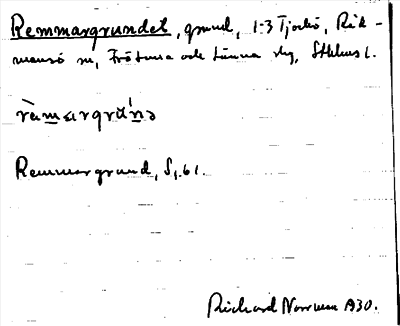 Remmargrundet, grund, 1:3 Tjockö, Rid-
mansö sn, Frötuna och Länna slg, Sthlms l.
ràmargrún̥ə
Remmargrund, S1.61.
Richard Norrman 1930.